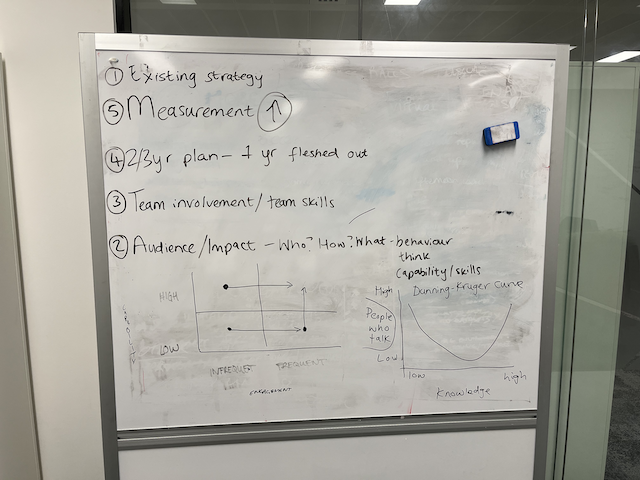 ① Existing strategy
⑤ Measurement ↑
④ 2/3yr plan - 1 yr fleshed out
③ Team involvement/team skills
② Audience/Impact - Who? How? What - behaviour
think
capability/skills
HIGH
LOW
INFREQUENT FREQUENT
ENGAGEMENT
Dunning-Kruger curve
High
People
who
talk
Low
low high
Knowledge